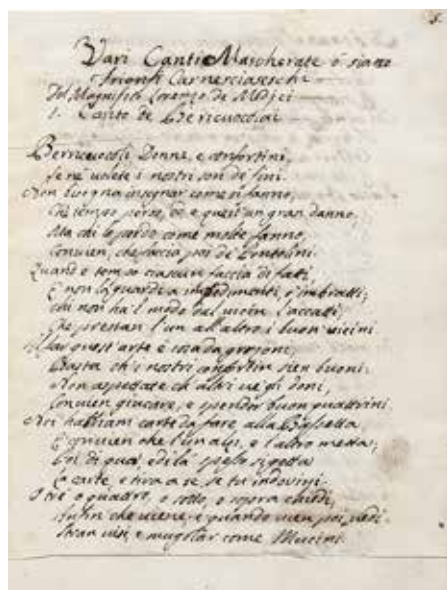 5.
Vari Canti e Mascherate ò siano
Trionfi Carnescialeschi
Del Magnifico Lorenzo de Medici
1. Canto de Bericuocolai
Berricuocoli, Donne, e confortini,
Se ne volete i nostri son de fini.
Non bisogna insegnar come si fanno,
Ch'è tempo perso, ed è quest'un gran danno,
Ma chi lo perde come molte fanno,
Convien, che faccia poi de
Quand'è tempo ciascun faccia di fatti
E non la guardi a impedimenti, o imbratti;
Chi non ha'l modo dal vicin l'accatti
Che prestan l'un all'altro i buon vicini.
quest'arte è cosa da garzoni,
Basta ch'i nostri confortin sien buoni:
Non aspettate ch'altri ve gli doni,
Convien giucare, e spender buon quattrini.
Noi habbiam carte da fare alla Bassetta
E convien che l'un alzi, e l'altro metta;
Poi di quà, e di là spesso si getta
Le carte, e tira a se, se tu indovini.
O tre, o quattro, o sotto, o sopra chiedi,
che viene, e quando vien poi, vedi
Stran visi, e mugolar come Mucini.